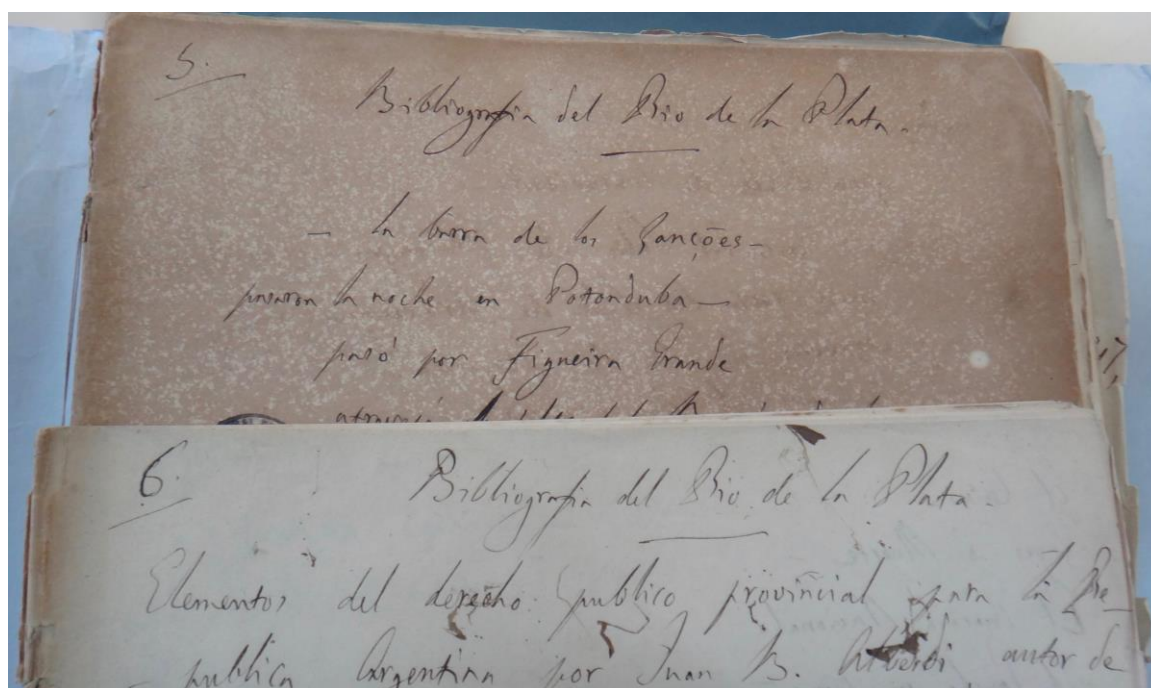 5.
Bibliografia del Rio de la Plata.
— la barra de los Ganções —
pasaron la noche en Potonduba —
pasó por Figueira Grande
atravesó
6.
Bibliografia del Rio de la Plata.
Elementos del derecho publico provincial para la Re-
publica Argentina por Juan B. Alberdi autor de